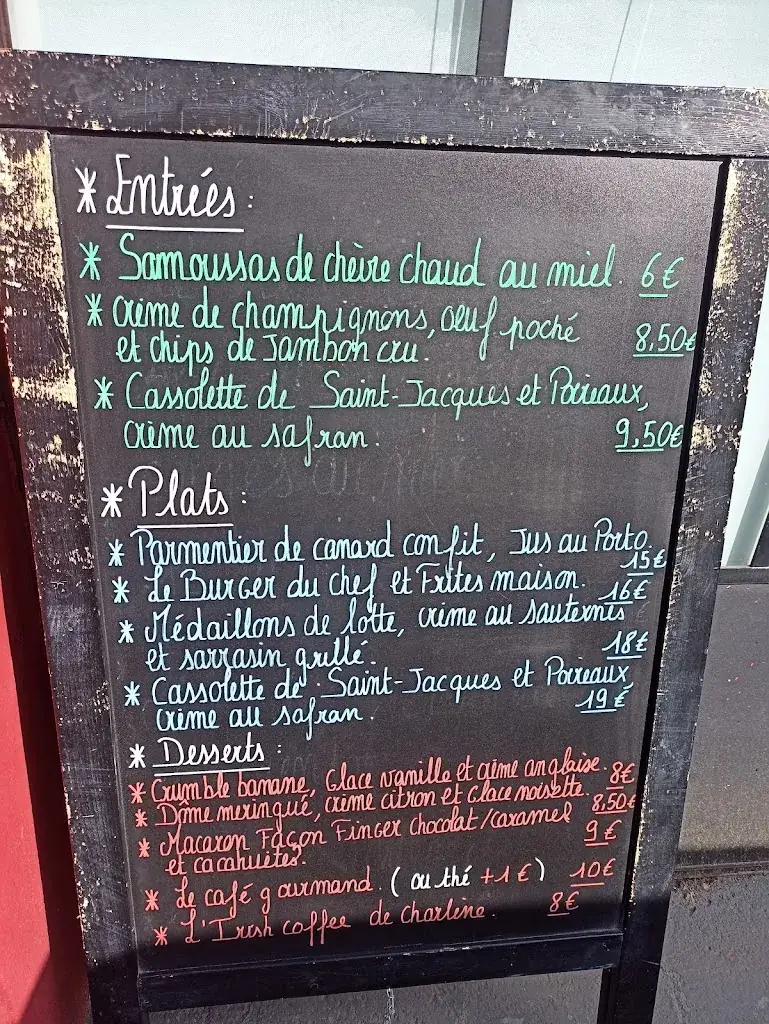 * Entrées :
* Samoussas de chèvre chaud au miel. 6€
* crème de champignons, oeuf poché
et chips de Jambon cru. 8,50€
* Cassolette de Saint-Jacques et Poireaux,
crème au safran. 9,50€
* Plats :
* Parmentier de canard confit, Jus au Porto.
15€
* Le Burger du chef et Frites maison. 16€
* Médaillons de lotte, crème au sauternes
et sarrasin grillé. 18€
* Cassolette de Saint-Jacques et Poireaux,
crème au safran. 19€
* Desserts :
* Crumble banane, Glace vanille et crème anglaise. 8€
* Dôme meringué, crème citron et Glace noisette. 8,50€
* Macaron Façon Finger chocolat/caramel 9€
et cacahuètes.
* Le café gourmand. (ou thé +1€) 10€
* L'Irish coffee de Charlène. 8€